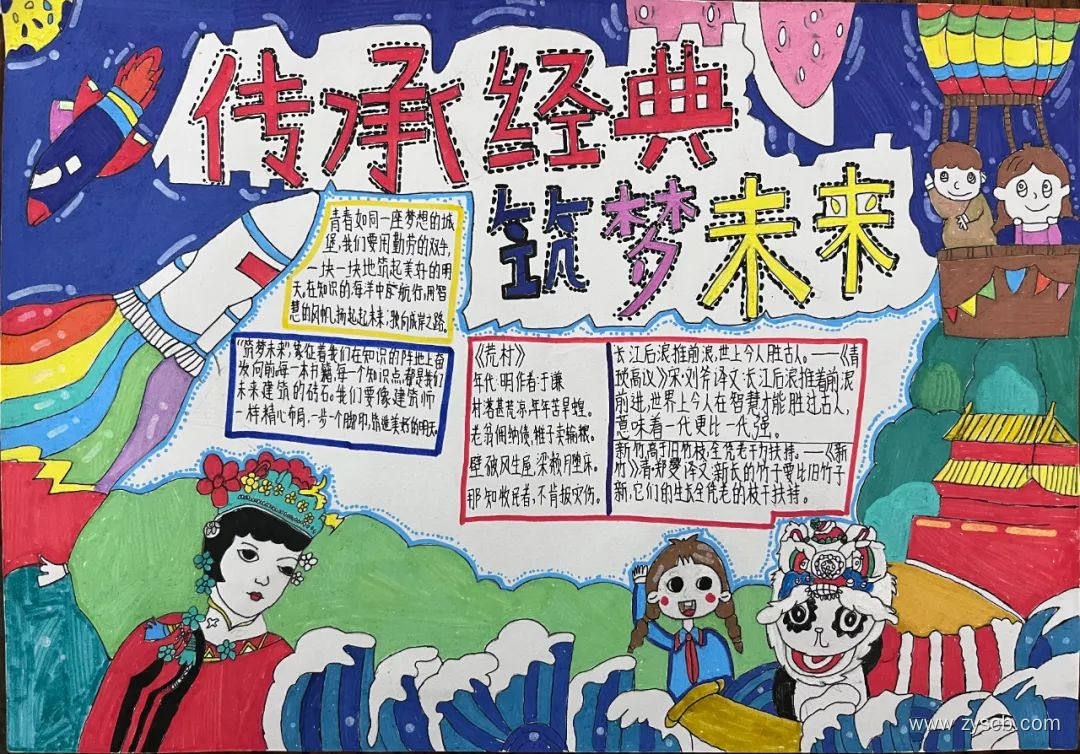 传承经典
筑梦未来
青春如同一座梦想的城
堡,我们要用勤劳的双手,
一块一块地筑起美好的明
天。在知识的海洋中航行,用智
慧的风帆,扬起未来,驶向成岸之路。
"筑梦未来",象征着我们在知识的阵地上奋
发向前,每一本书籍,每一个知识点,都是我们
未来建筑的砖石。我们要像建筑师
一样精心布局,一步一个脚印,筑造美好的明天。
《荒村》
年代:明 作者:于谦
村落甚荒凉,年年苦旱蝗。
老翁佣纳债,稚子卖输粮。
壁破风生屋,梁颓月堕床。
那知牧民者,不肯报灾伤。
长江后浪推前浪,世上今人胜古人。——《青
琐高议》宋·刘斧 译文:长江后浪推着前浪
前进,世界上今人在智慧才能胜过古人,
意味着一代更比一代强。
新竹高于旧竹枝,全凭老干为扶持。——《新
竹》清·郑燮 译文:新长的竹子要比旧竹子
新,它们的生长全凭老的枝干扶持。
www.zyscb.com